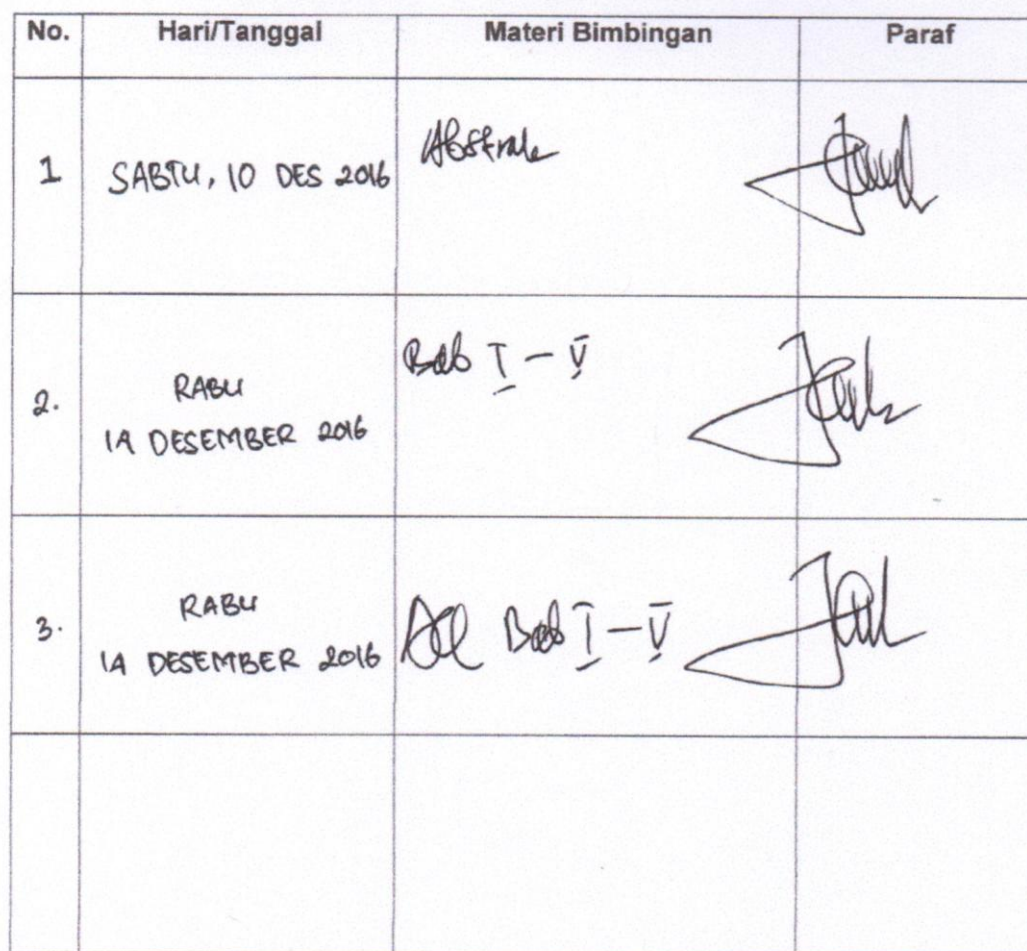 No. Hari/Tanggal Materi Bimbingan Paraf
1 SABTU, 10 DES 2016 Abstrak
2. RABU
14 DESEMBER 2016
Bab I – V
3. RABU
14 DESEMBER 2016
Acc Bab I – V